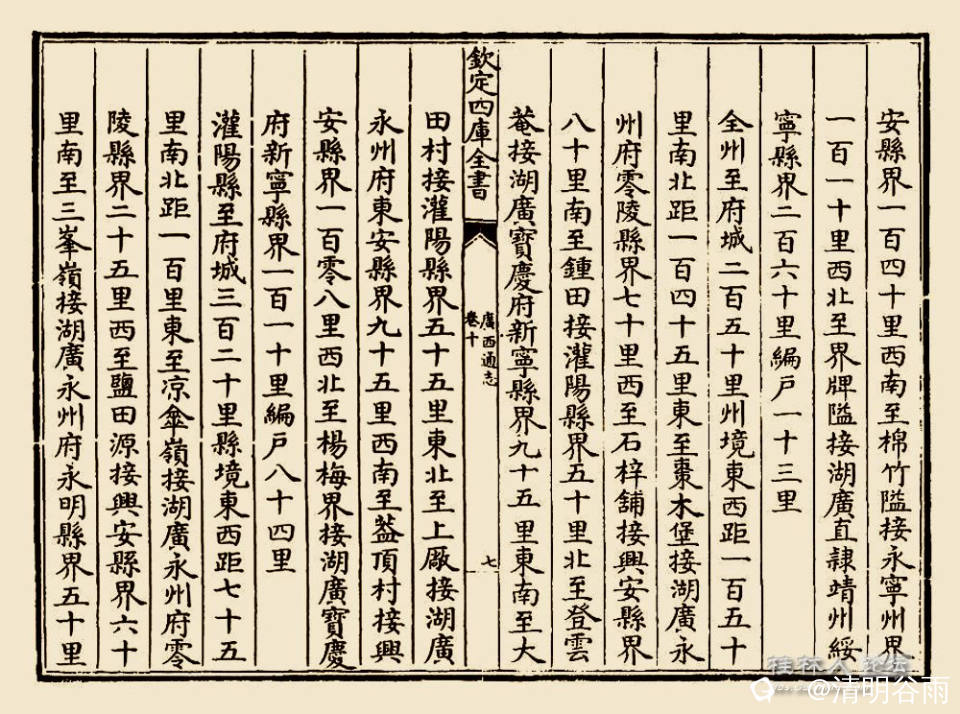 安縣界一百四十里西南至棉竹隘接永寧州界
一百一十里西北至界牌隘接湖廣直隸靖州綏
寧縣界二百六十里編戸一十三里
全州至府城二百五十里州境東西距一百五十
里南北距一百四十五里東至棗木堡接湖廣永
州府零陵縣界七十里西至石梓舖接興安縣界
八十里南至鍾田接灌陽縣界五十里北至登雲
菴接湖廣寶慶府新寧縣界九十五里東南至大
欽定四庫全書
廣西通志
卷十
七
田村接灌陽縣界五十五里東北至上厰接湖廣
永州府東安縣界九十五里西南至葢頂村接興
安縣界一百零八里西北至楊梅界接湖廣寶慶
府新寧縣界一百一十里編戸八十四里
灌陽縣至府城三百二十里縣境東西距七十五
里南北距一百里東至凉傘嶺接湖廣永州府零
陵縣界二十五里西至鹽田源接興安縣界六十
里南至三峯嶺接湖廣永州府永明縣界五十里
桂林人論坛
@清明谷雨